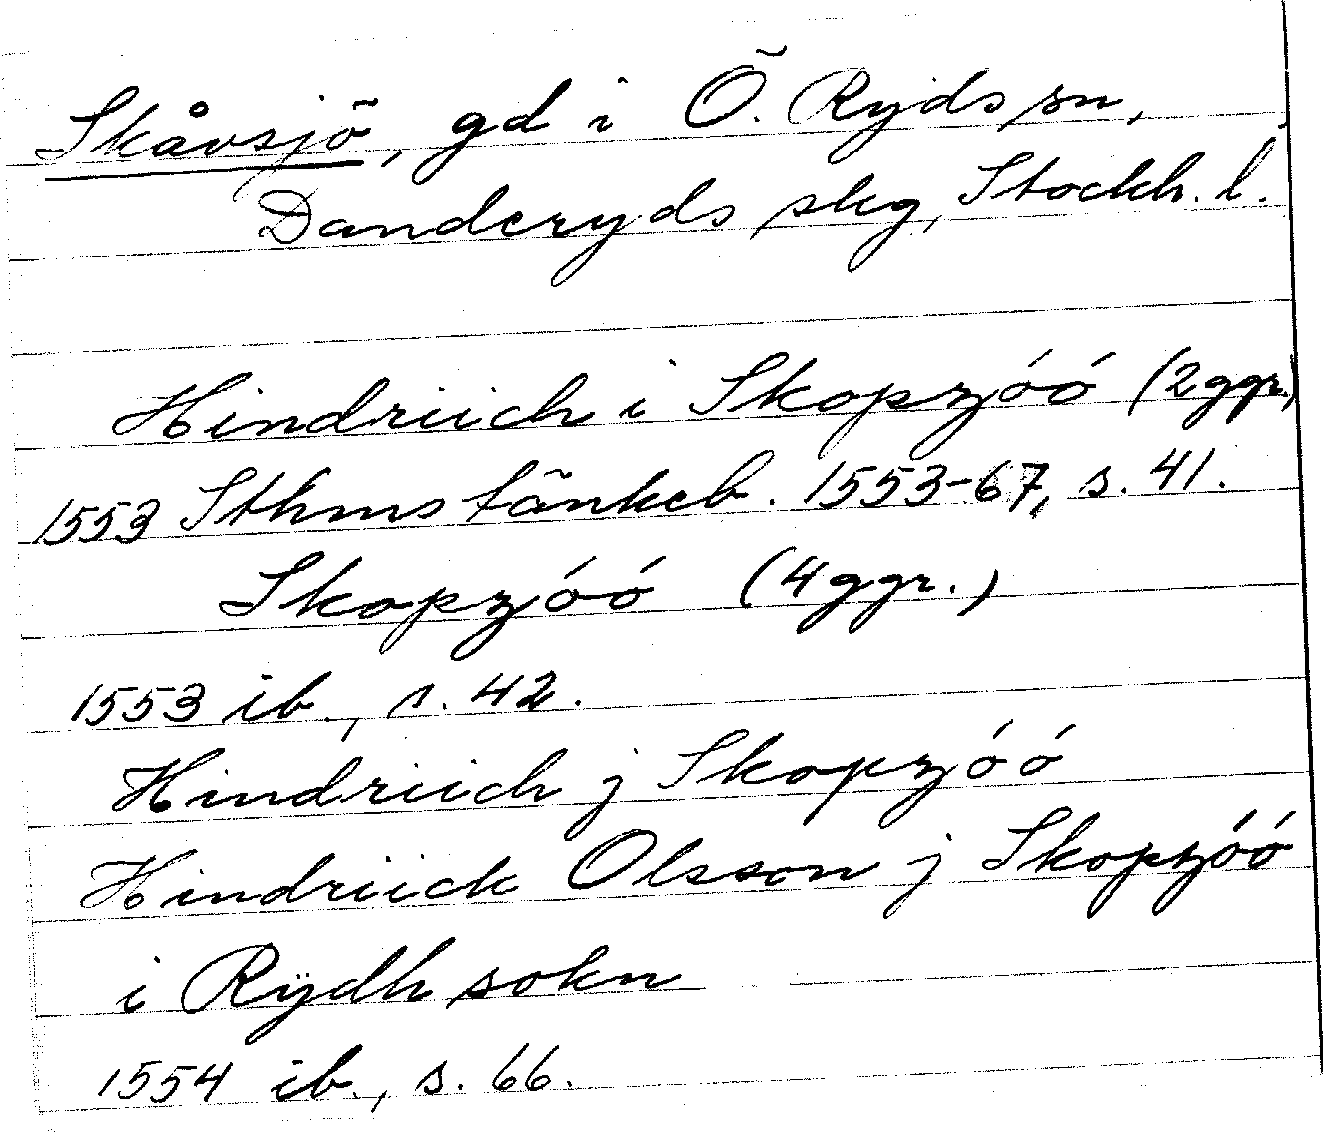 Skåvsjö, gd i Ö. Ryds sn,
Danderyds skg, Stockh. l.
Hindriich i Skopzóó (2ggr.)
1553 Sthms tänkeb. 1553-67, s. 41.
Skopzóó (4ggr.)
1553 ib., s. 42.
Hindriich j Skopzóó
Hindriick Olsson j Skopzóó
i Rÿdh sokn
1554 ib., s. 66.